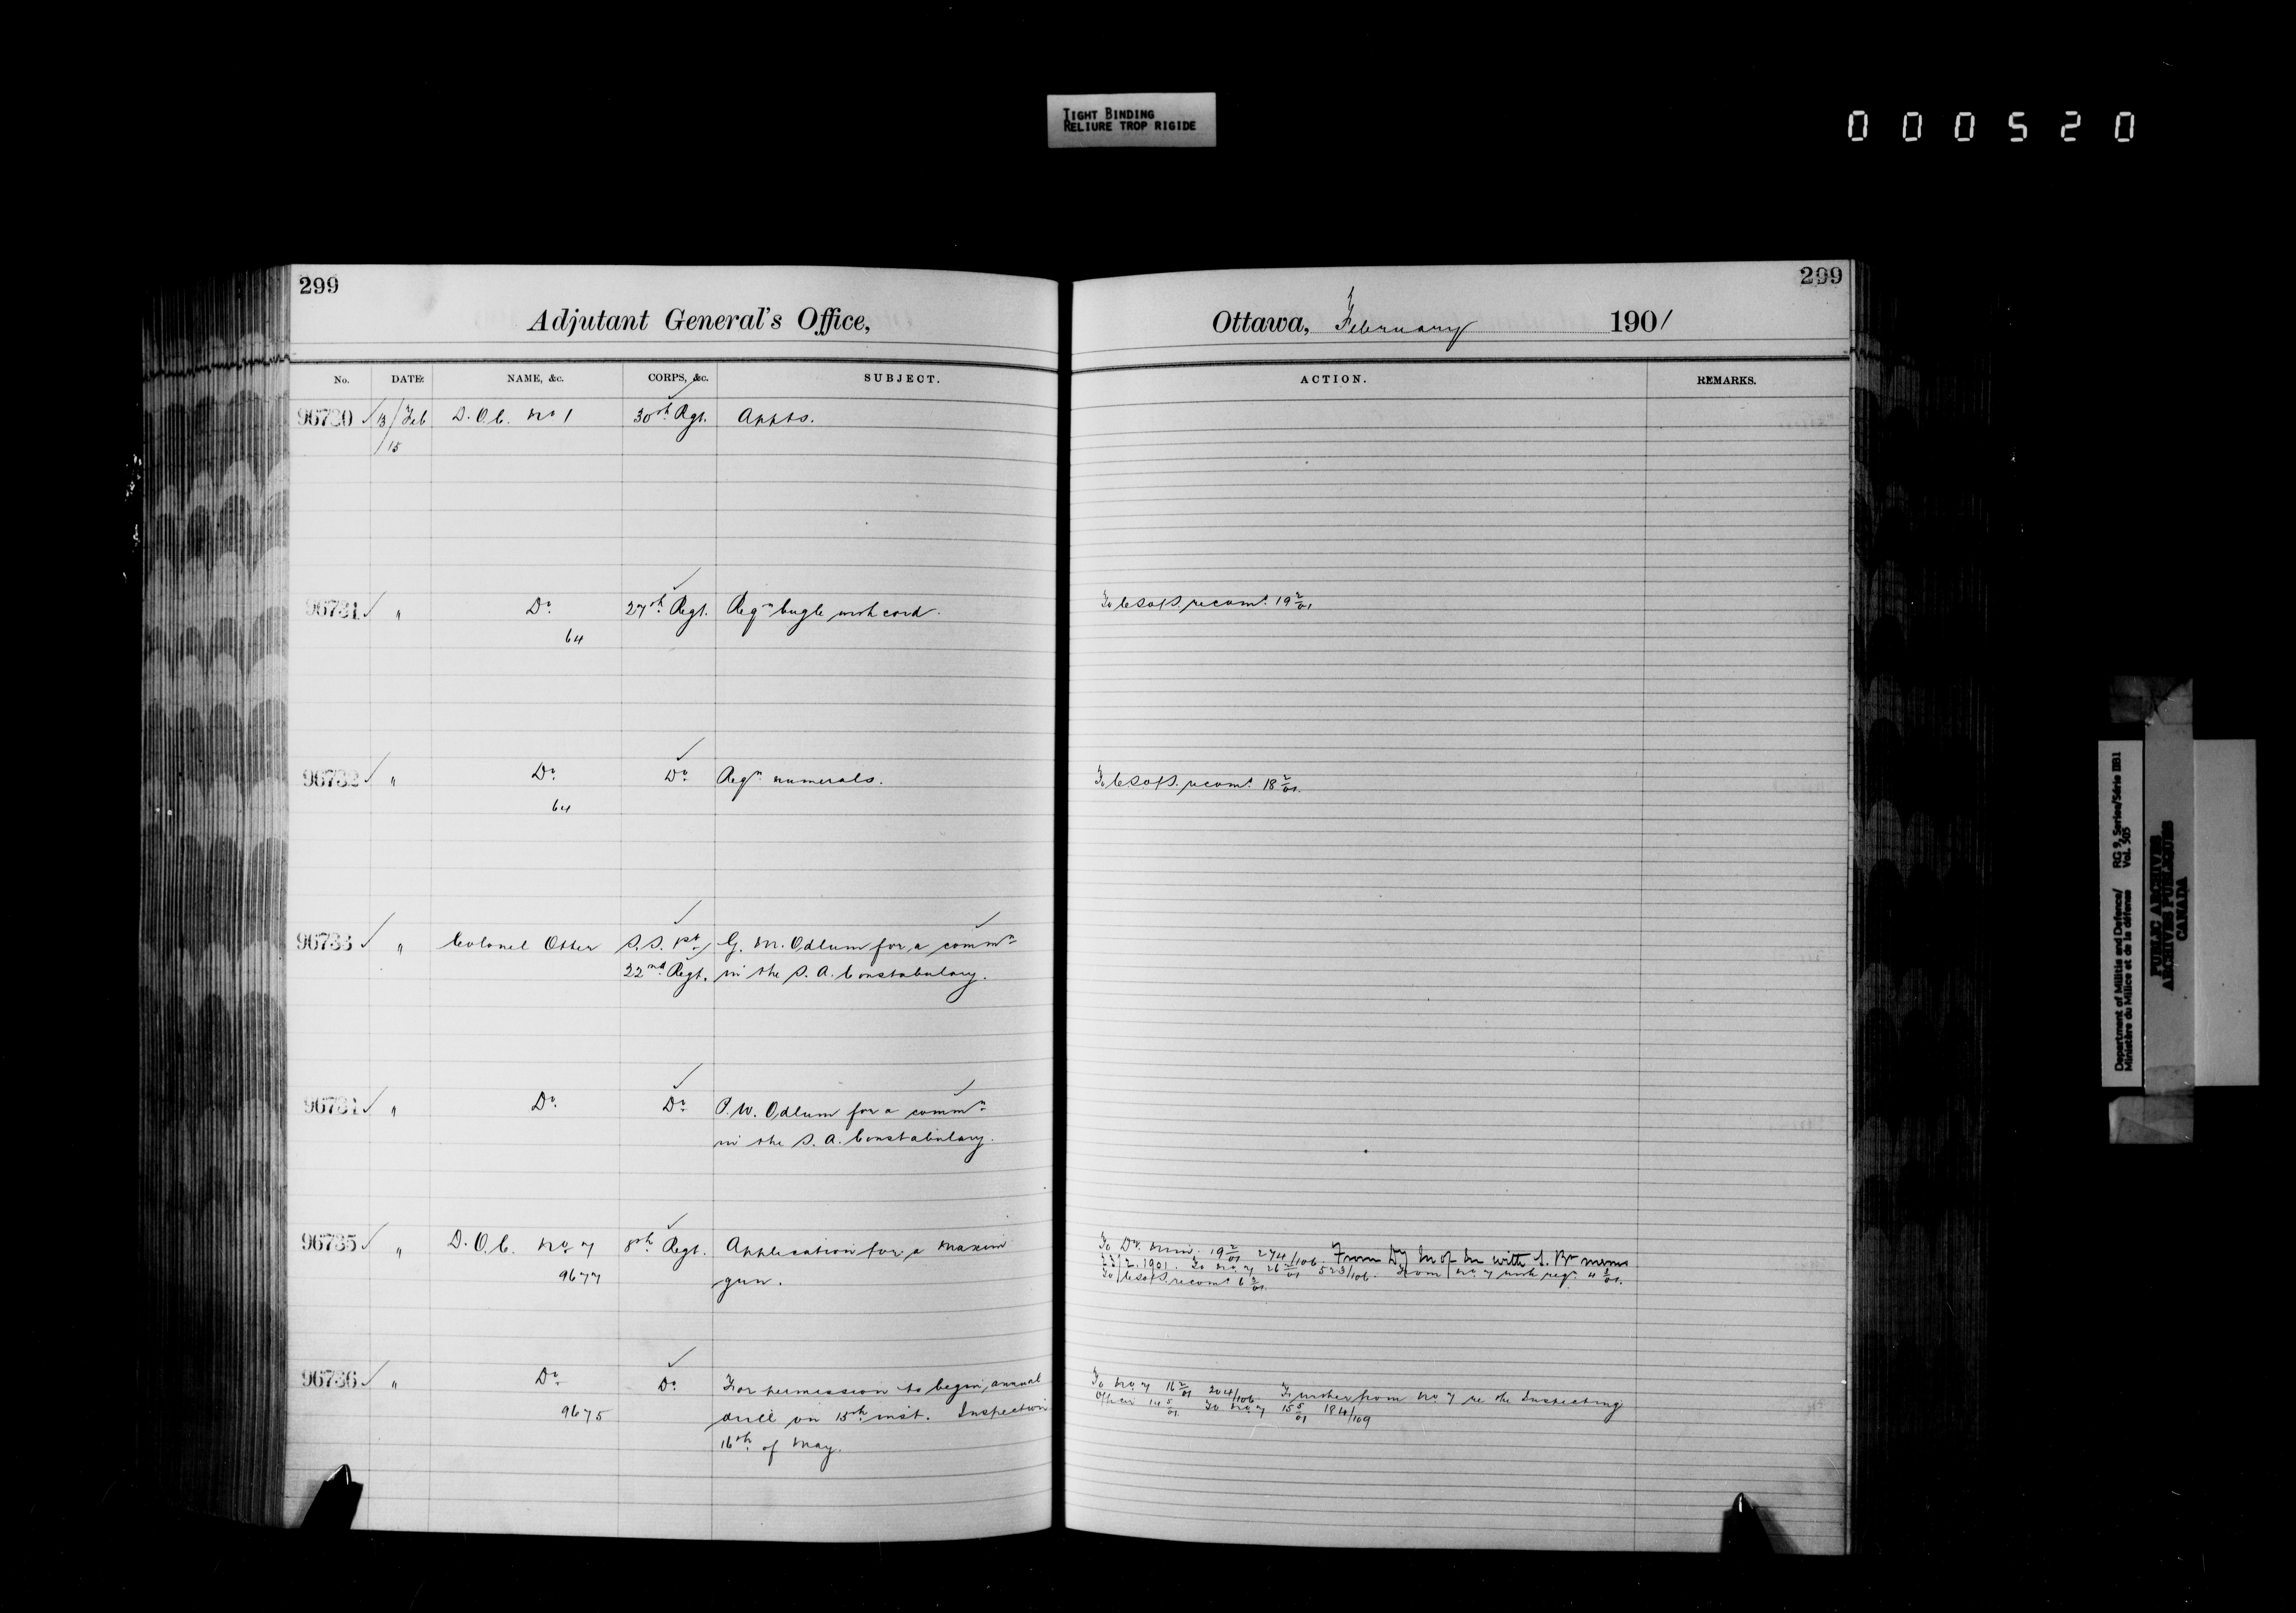 TIGHT BINDING
RELIURE TROP RIGIDE
000520
299
Adjutant General's Office,
No. DATE. NAME, &c. CORPS, &c. SUBJECT.
96730 13/Feb D.O.C. No 1 30th Regt. Appts.
15
96731 " Do 27th Regt. Reqn bugle with cord.
64
96732 " Do Do Reqn numerals.
64
96733 " Colonel Otter G. M. Odlum for a commn
22nd Regt. in the S. A. Constabulary.
96734 " Do Do P. W. Odlum for a commn
in the S. A. Constabulary.
96735 " D.O.C. No 7 8th Regt. Application for a Maxim
9677 gun.
96736 " Do Do For permission to begin annual
9675 drill on 15th inst. Inspection
16th of May.
299
Ottawa, February 1901
ACTION. REMARKS.
To C S of S. recomd 19 2/01
To C S of S. recomd 18 2/01.
To Dy. Min. 19 2/01 274/106. From Dy M of M with memo
23/2.1901. To No 7 26 2/01 523/106. From No 7 with reqn 4 3/01.
To C S of S. recomd 6 3/01.
To No 7 16 2/01 204/106. Further from No 7 re the Inspecting
Officer 14 5/01. To No 7 15 5/01 184/109
Department of Militia and Defence/ RG 9, Series/Série IIB1
Ministère du Milice et de la défense Vol. 505
PUBLIC ARCHIVES
ARCHIVES PUBLIQUES
CANADA